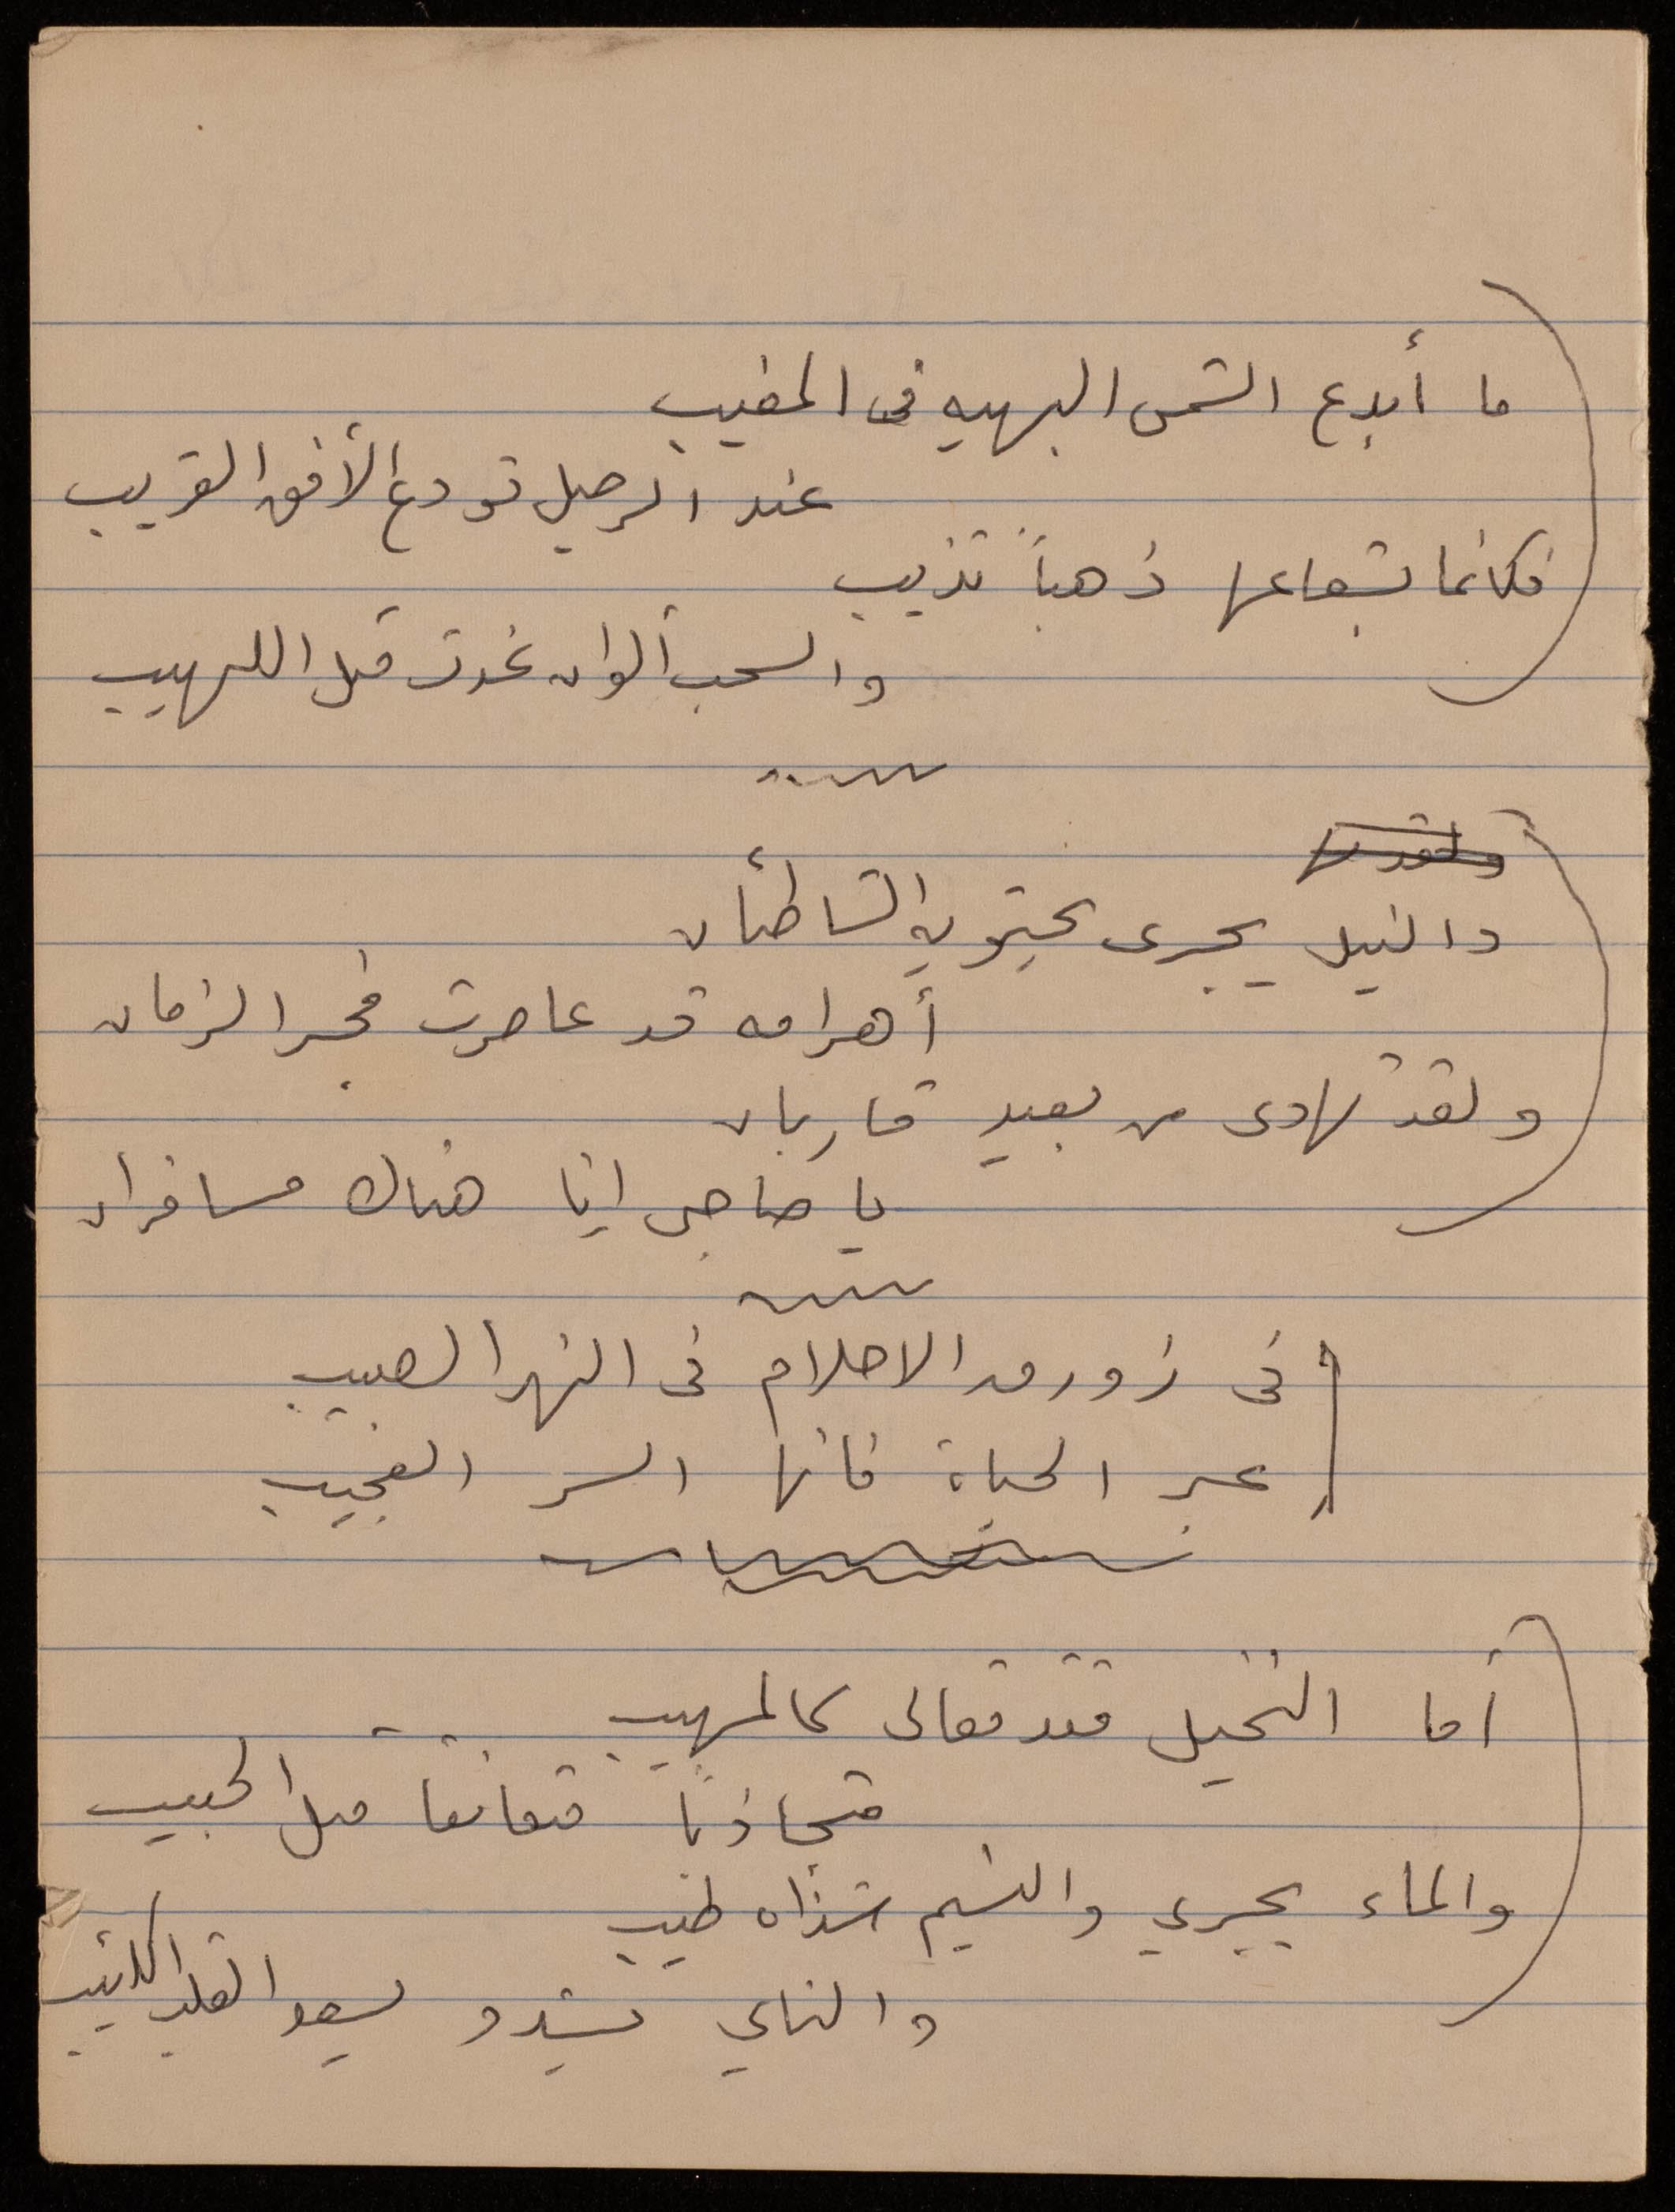 ما أبدع الشمس البهيه فى المغيب
عند الرحيل تودع الأفق القريب
فكانما بشعاعها ذهباً تذيب
والسحب ألوان غدت مثل اللهيب
ولقد
والنيل يجرى يحتويه الشاطئان
أهرامه قد عاصرت فجر الزمان
ولقد تهادى من بعيد قاربان
يا صاحبى انا هناك مسافران
فى زورق الاحلام فى النهر الحبيب
عبر الحياة فانها السر العجيب
أما النخيل فقد تعالى كالمهيب
متجاذبًا متعانقا مثل الحبيب
والماء يجري والنسيم شذاه طيب
والناي يشدو يسعد القلب الكئيب